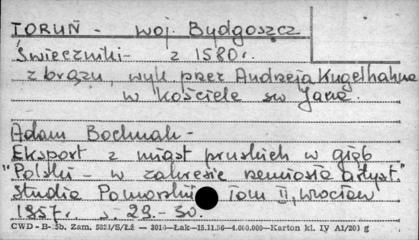 TORUŃ - woj. Bydgoszcz
Świeczniki - z 1580r.
z brązu, wyk. przez Andrzeja Kugelhahna
w kościele św Jana.
Adam Bochnak -
Eksport z miast pruskich w głąb
"Polski - w zakresie rzemiosła artyst."
Studia Pomorskie Tom II, Wrocław
1957r. s. 29 - 30.
CWD - B - 3b. Zam. 5821/S/Łż — 3016—Łak—15.11.56—4.000.000—Karton kl. IV A1/203 g